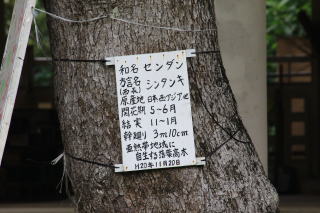 和名 センダン
方言名 シンタンキ
(西表)
原産地 日本 西アジア他
開花期 5～6月
結実 11～1月
幹廻り 3m10cm
亜熱帯地域に
自生する落葉高木
H20年11月20日